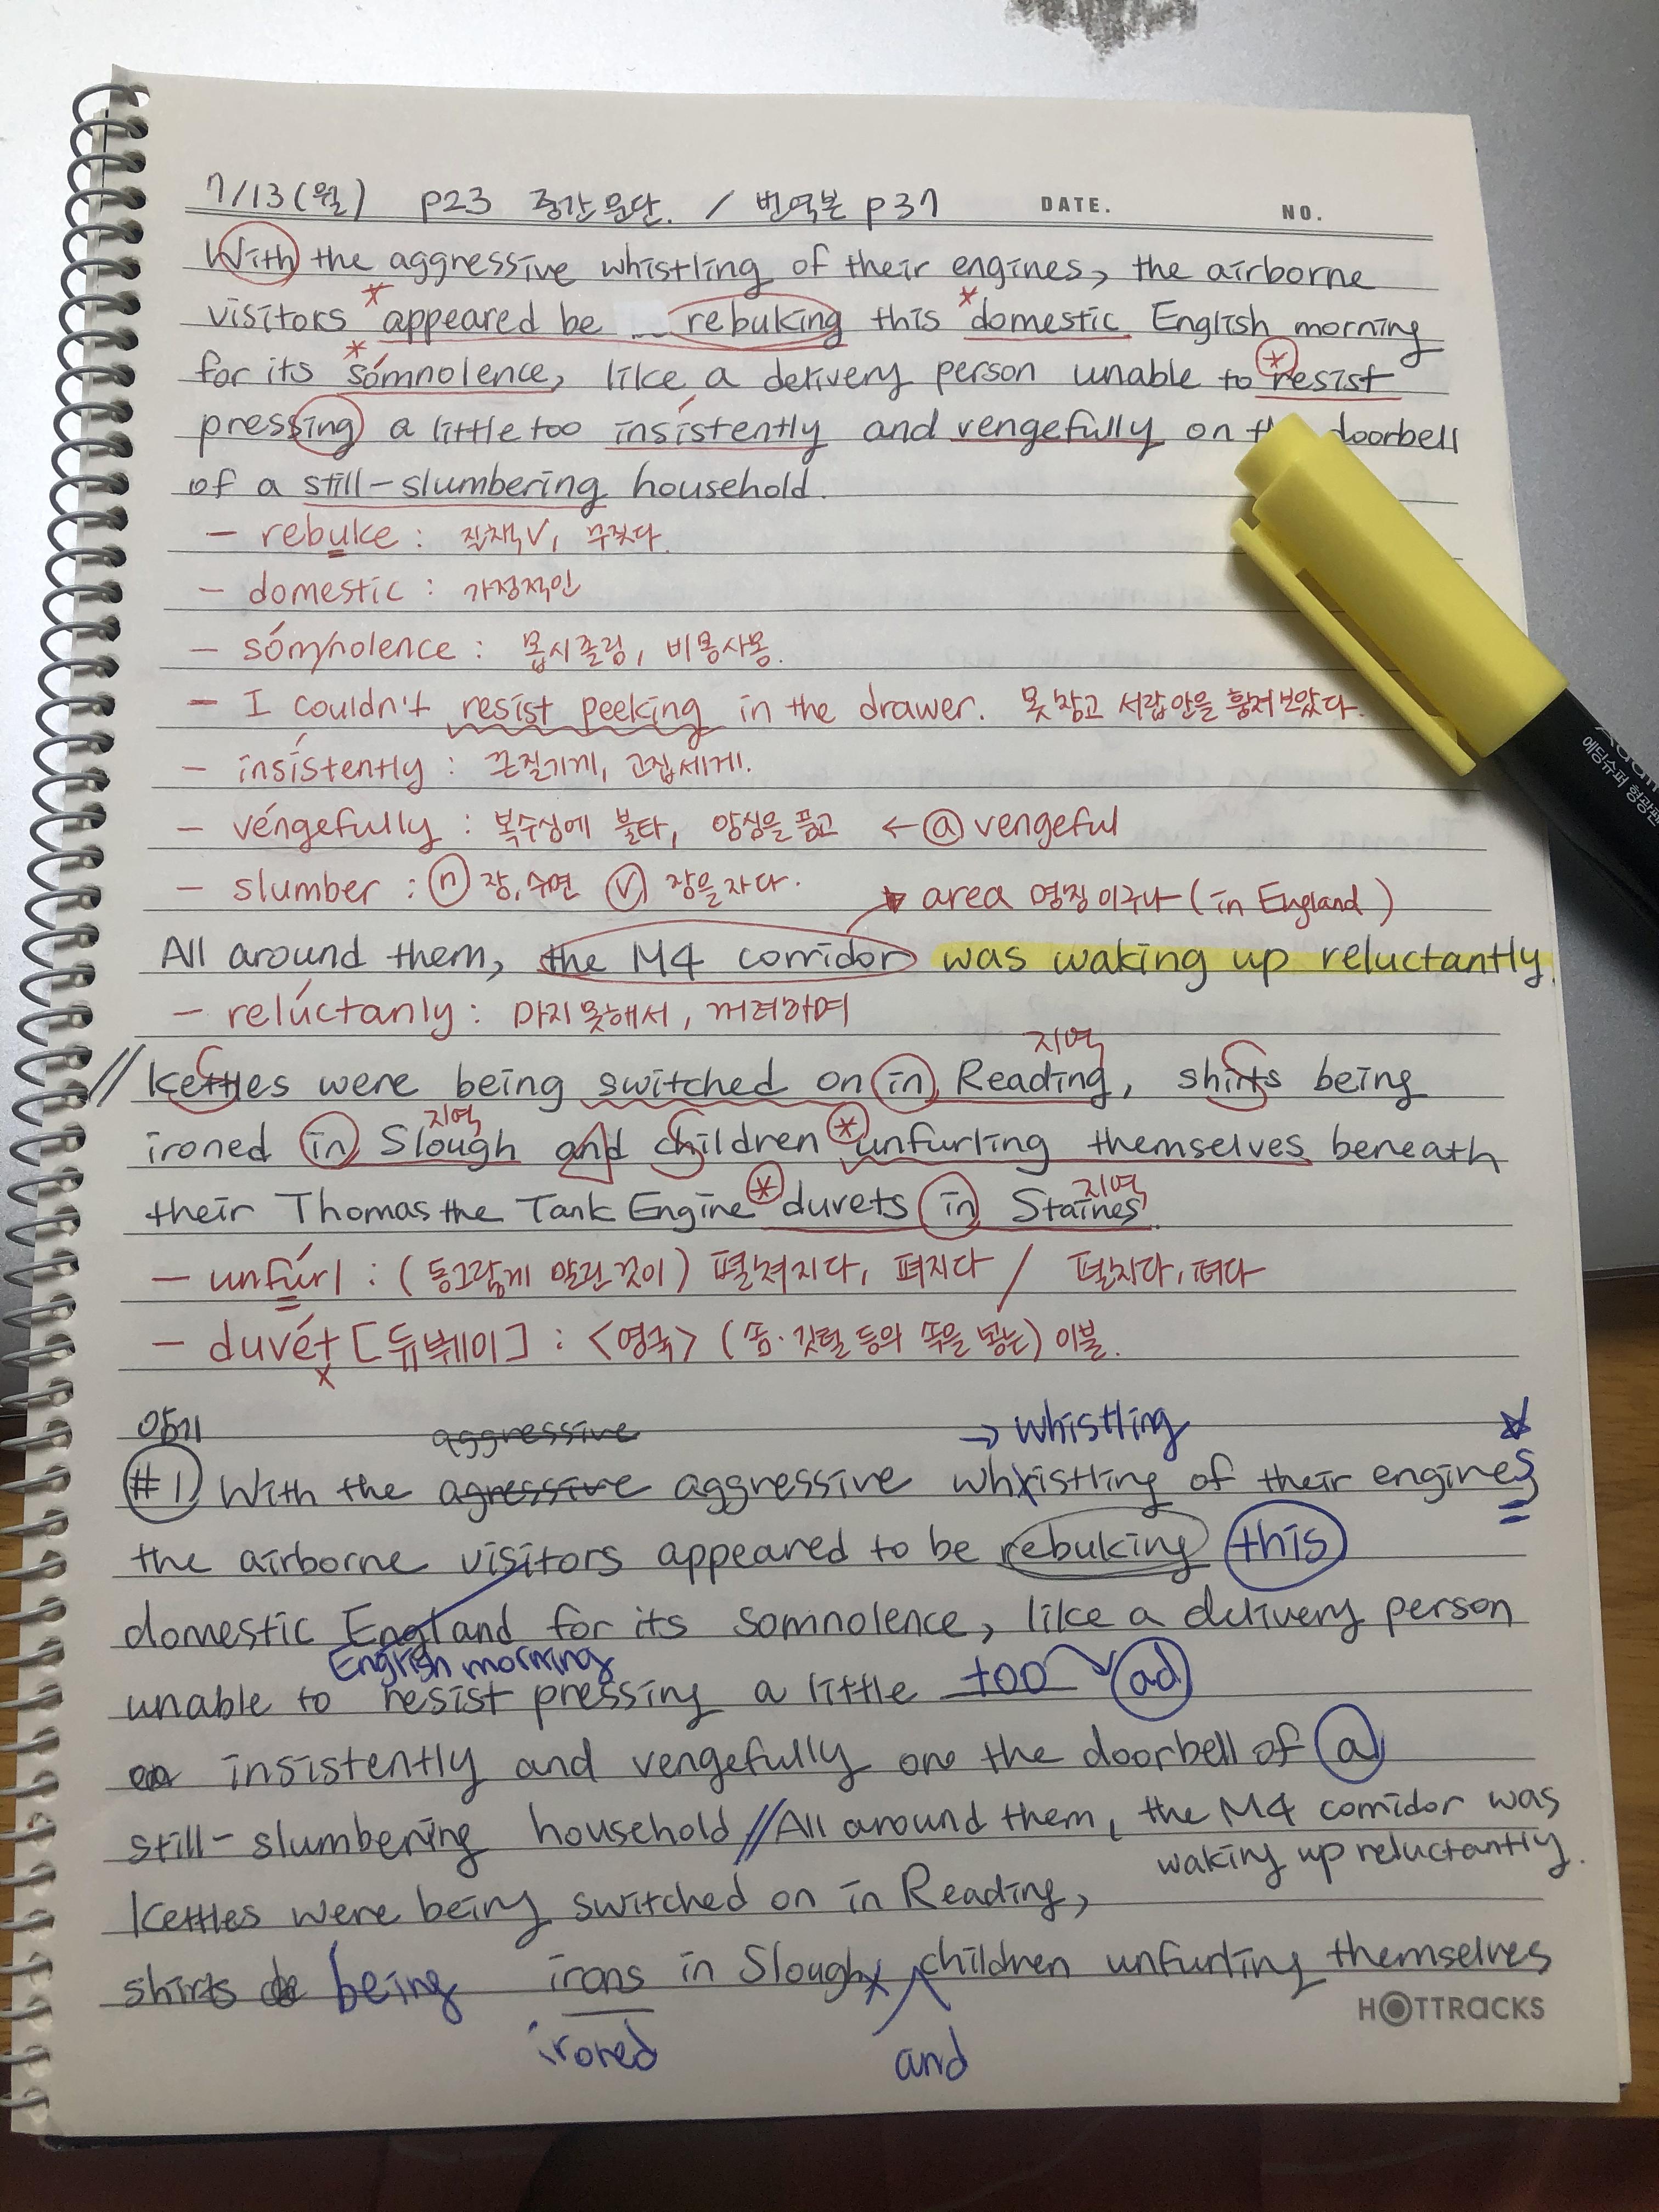 7/13(월) p23 중간 문단. / 번역본 p37 DATE. NO.
With the aggressive whistling of their engines, the airborne
visitors *appeared be rebuking this *domestic English morning
for its *sómnolence, like a delivery person unable to *resist
pressing a little too insístently and vengefully on the doorbell
of a still-slumbering household.
- rebuke : 질책V, 꾸짖다.
- domestic : 가정적인
- sómnolence : 몹시 졸림, 비몽사몽.
- I couldn't resist peeking in the drawer. 못 참고 서랍 안을 훔쳐보았다.
- insístently : 끈질기게, 고집세게.
- véngefully : 복수심에 불타, 앙심을 품고 ← ⓐ vengeful
- slumber : ⓝ 잠, 수면 ⓥ 잠을 자다.
area 명칭이구나 (in England)
All around them, the M4 corridor was waking up reluctantly.
- relúctanly : 마지못해서, 꺼려하며
지역
// Kettles were being switched on in Reading, shirts being
지역
ironed in Slough and children *unfurling themselves beneath
지역
their Thomas the Tank Engine *duvets in Staines.
- unfúrl : (동그랗게 말린 것이) 펼쳐지다, 펴지다 / 펼치다, 펴다
- duvét [듀베이] : <영국> (솜·깃털 등의 속을 넣은) 이불.
x
암기 aggressive → whistling
#1 With the agressive aggressive whristling of their engines
the airborne visitors appeared to be rebuking this
domestic England for its somnolence, like a delivery person
English morning
unable to resist pressing a little too ad
insistently and vengefully one the doorbell of a
still-slumbering household // All around them, the M4 corridor was
waking up reluctantly.
Kettles were being switched on in Reading,
shirts being irons in Slough children unfurling themselves
ironed and
HOTTRACKS
에딩슈퍼 형광펜